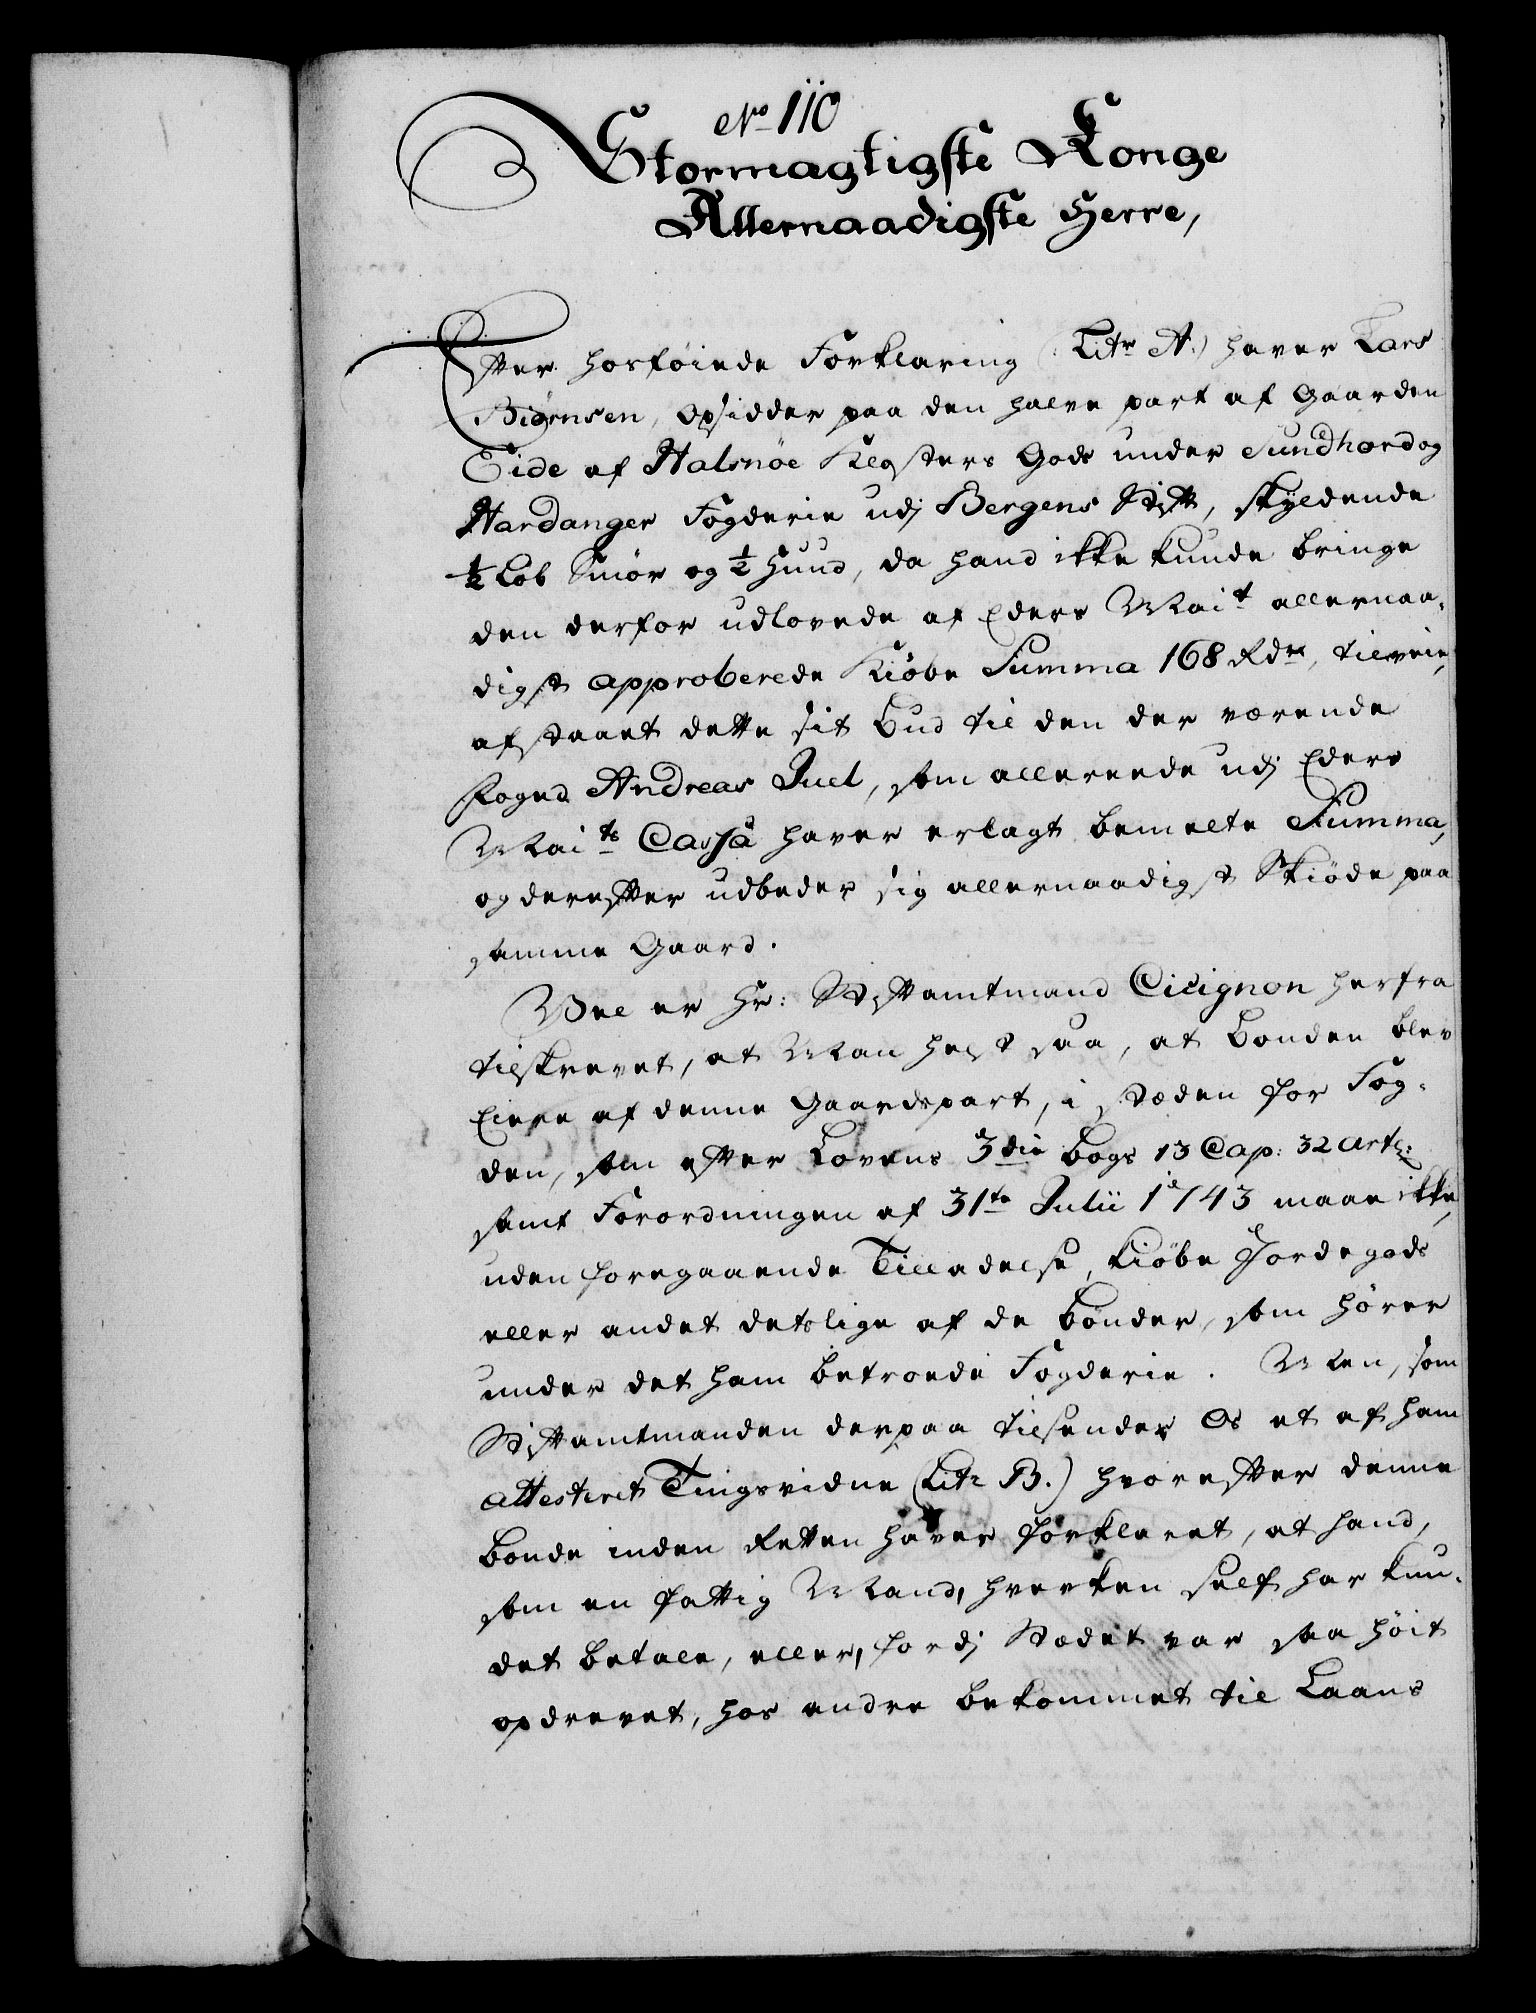 No 110
Stormagtigste Konge
Allernaadigste Herre,
Efter hosføiede Forklaring (Litr A.) haver Lars
Biørnsen, Opsidder paa den halve part af Gaarden
Eide af Halsnöe Klosters Gods under Sundhord og
Hardanger Fogderie udj Bergens Stift, skyldende
½ Løb Smör og ½ Huud, da hand ikke kunde bringe
den derfor udlovede af Eders Mait allernaa-
digst approberede Kiöbe Summa 168 Rdr, tilveie,
afstaaet dette sit Bud til den der værende
Foged Andreas Juel, som allerede udj Eders
Maits Cassa haver erlagt bemelte Summa,
og derefter udbeder sig allernaadigst Skiöde paa
samme Gaard.
Vel er Hr: Stiftamtmand Cicignon herfra
tilskrevet, at Man helst saa, at Bonden blev
Eiere af denne Gaardspart, i stæden for Fog-
den, som efter Lovens 3die Bogs 13 Cap: 32 Artl:
samt Forordningen af 31te Julii 1743 maae ikke,
uden foregaaende Tilladelse, kiöbe Jordegods
eller andet detslige af de Bönder, som hörer
under det ham betroede Fogderie. Men, som
Stiftamtmanden derpaa tilsender Os et af ham
attesteret Tingsvidne (Litr B.) hvorefter denne
Bonde inden Retten haver forklaret, at hand,
som en fattig Mand, hverken self har kun-
det betale, eller, fordj Stædet var saa höit
opdrevet, hos andre bekommet til Laans